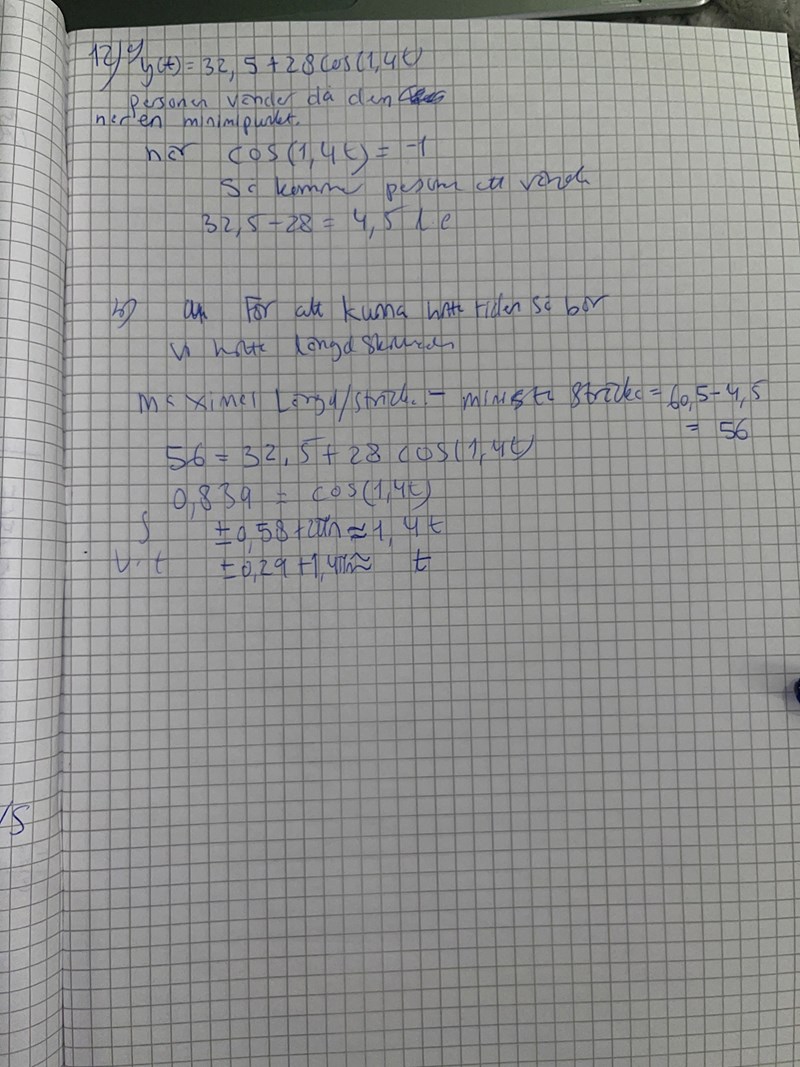 12) a) y(t) = 32,5 + 28 cos(1,4t)
personen vänder då den
når en minimipunkt.
när cos(1,4t) = -1
Så kommer personen att vända
32,5 - 28 = 4,5 l e
b) För att kunna hitta tiden så bör
vi hitta längdskillnaden
maximal Längd/sträcka - minsta sträcka = 60,5 - 4,5
= 56
56 = 32,5 + 28 cos(1,4t)
0,839 = cos(1,4t)
± 0,58 + 2πn ≈ 1,4t
v.t ± 0,29 + 1,4πn ≈ t
15